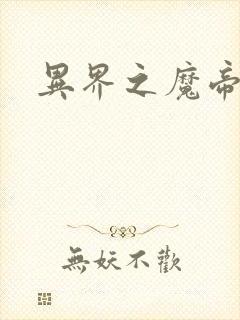 異界之魔帝
無妖不歡